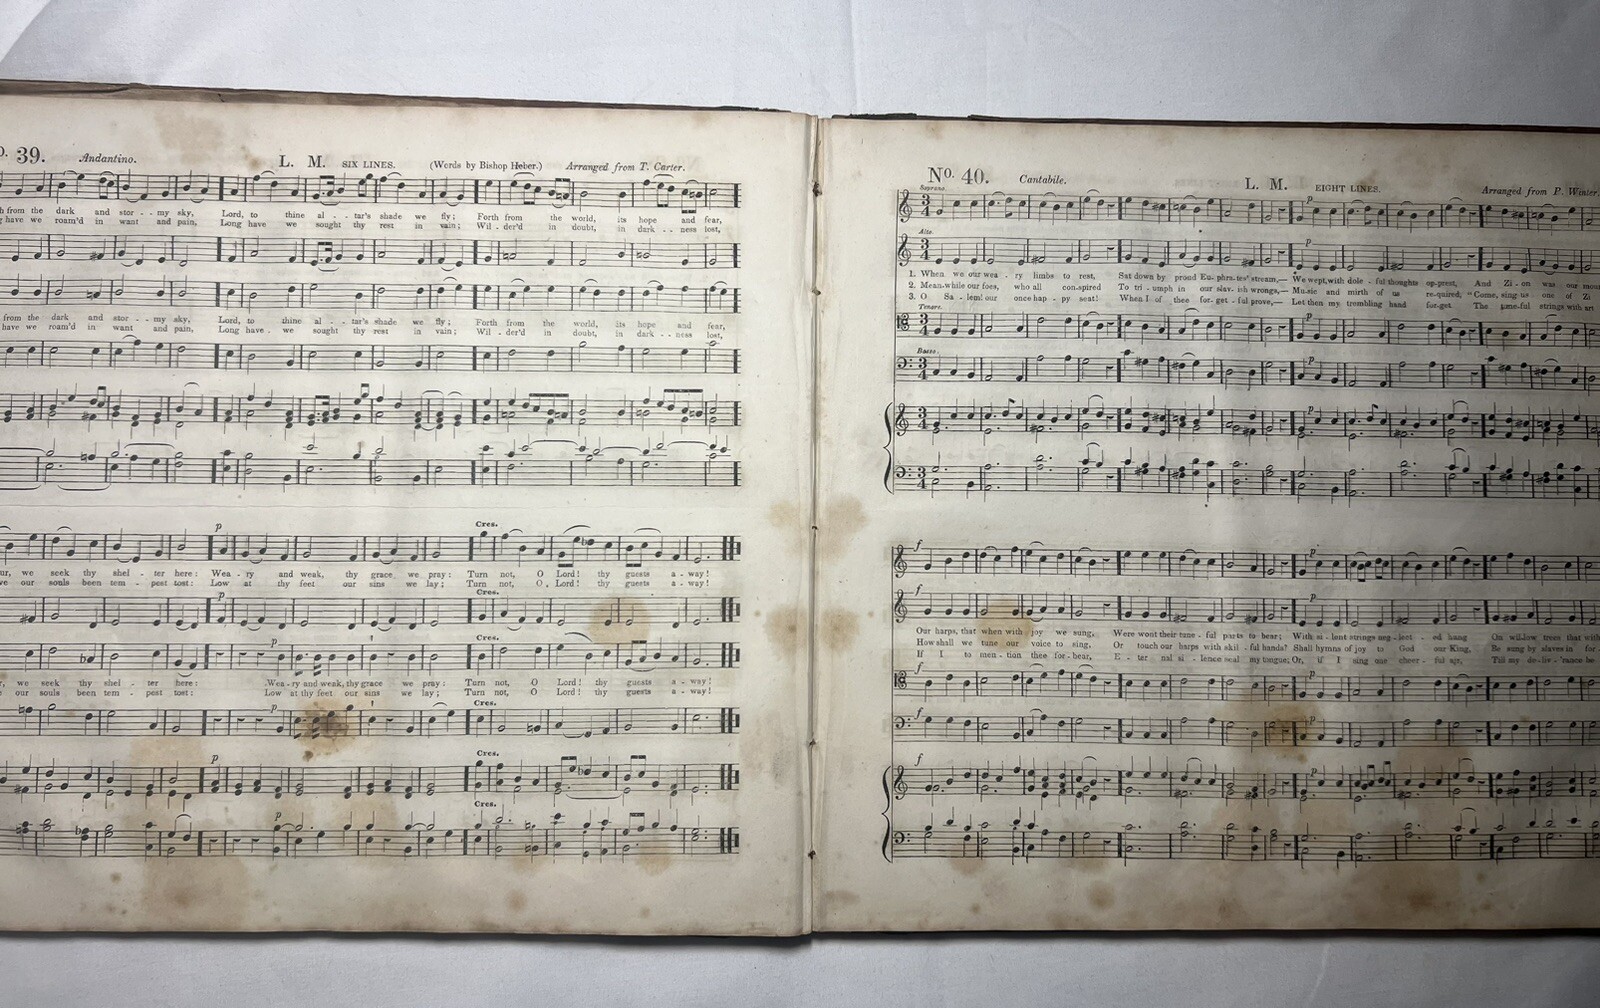 39. Andantino. L. M. SIX LINES. (Words by Bishop Heber.) Arranged from T. Carter.
from the dark and stor - - my sky, Lord, to thine al - - tar's shade we fly; Forth from the world, its hope and fear,
have we roam'd in want and pain, Long have we sought thy rest in vain; Wil - der'd in doubt, in dark - - ness lost,
from the dark and stor - - my sky, Lord, to thine al - - tar's shade we fly; Forth from the world, its hope and fear,
have we roam'd in want and pain, Long have we sought thy rest in vain; Wil - der'd in doubt, in dark - - ness lost,
p Cres.
we seek thy shel - ter here: Wea - ry and weak, thy grace we pray: Turn not, O Lord! thy guests a - way!
our souls been tem - pest tost: Low at thy feet our sins we lay; Turn not, O Lord! thy guests a - way!
p Cres.
p Cres.
we seek thy shel - ter here: Wea - ry and weak, thy grace we pray: Turn not, O Lord! thy guests a - way!
our souls been tem - pest tost: Low at thy feet our sins we lay; Turn not, O Lord! thy guests a - way!
p Cres.
p Cres.
p Cres.
No. 40. Cantabile. L. M. EIGHT LINES. Arranged from P. Winter.
Soprano. p
Alto. p
1. When we our wea - ry limbs to rest, Sat down by proud Eu - phra - tes' stream,— We wept, with dole - ful thoughts op - prest, And Zi - on was our
2. Mean - while our foes, who all con - spired To tri - umph in our slav - ish wrongs,— Mu - sic and mirth of us re - quired, "Come, sing us one of Zi
3. O Sa - lem! our once hap - py seat! When I of thee for - get - ful prove,— Let then my trembling hand for - get The tune - ful strings with art
Tenore. p
Basso. p
p
f p
f p
Our harps, that when with joy we sung, Were wont their tune - ful parts to bear; With si - lent strings neg - lect - ed hang On willow trees that
How shall we tune our voice to sing, Or touch our harps with skil - ful hands? Shall hymns of joy to God our King, Be sung by slaves in for
If I to men - tion thee for - bear, E - ter - nal si - lence seal my tongue; Or, if I sing one cheer - ful air, Till my de - liv - 'rance be
f p
f p
f p